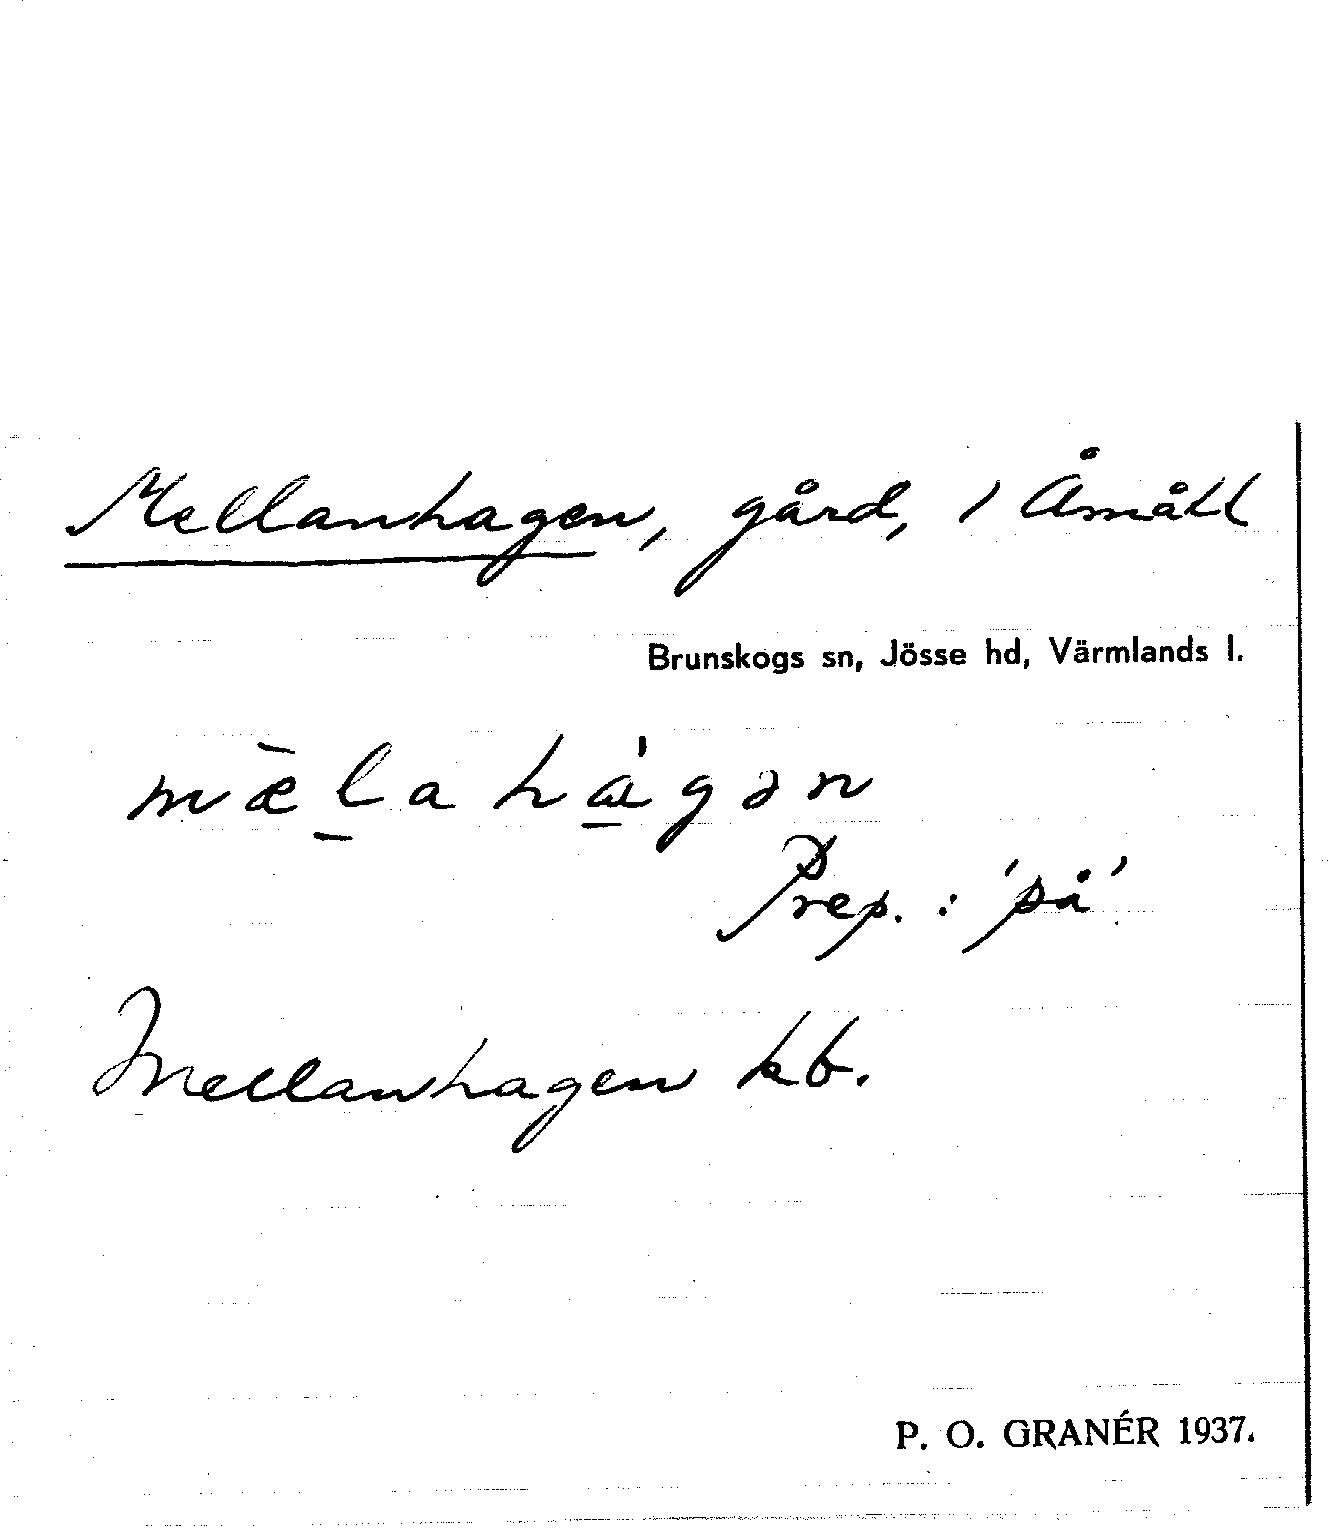 Mellanhagen, gård, / Åmått
Brunskogs sn, Jösse hd, Värmlands l.
mæ̀l̠a há̠gən
Prep.: 'på'
Mellanhagen kb.
P. O. GRANÉR 1937.